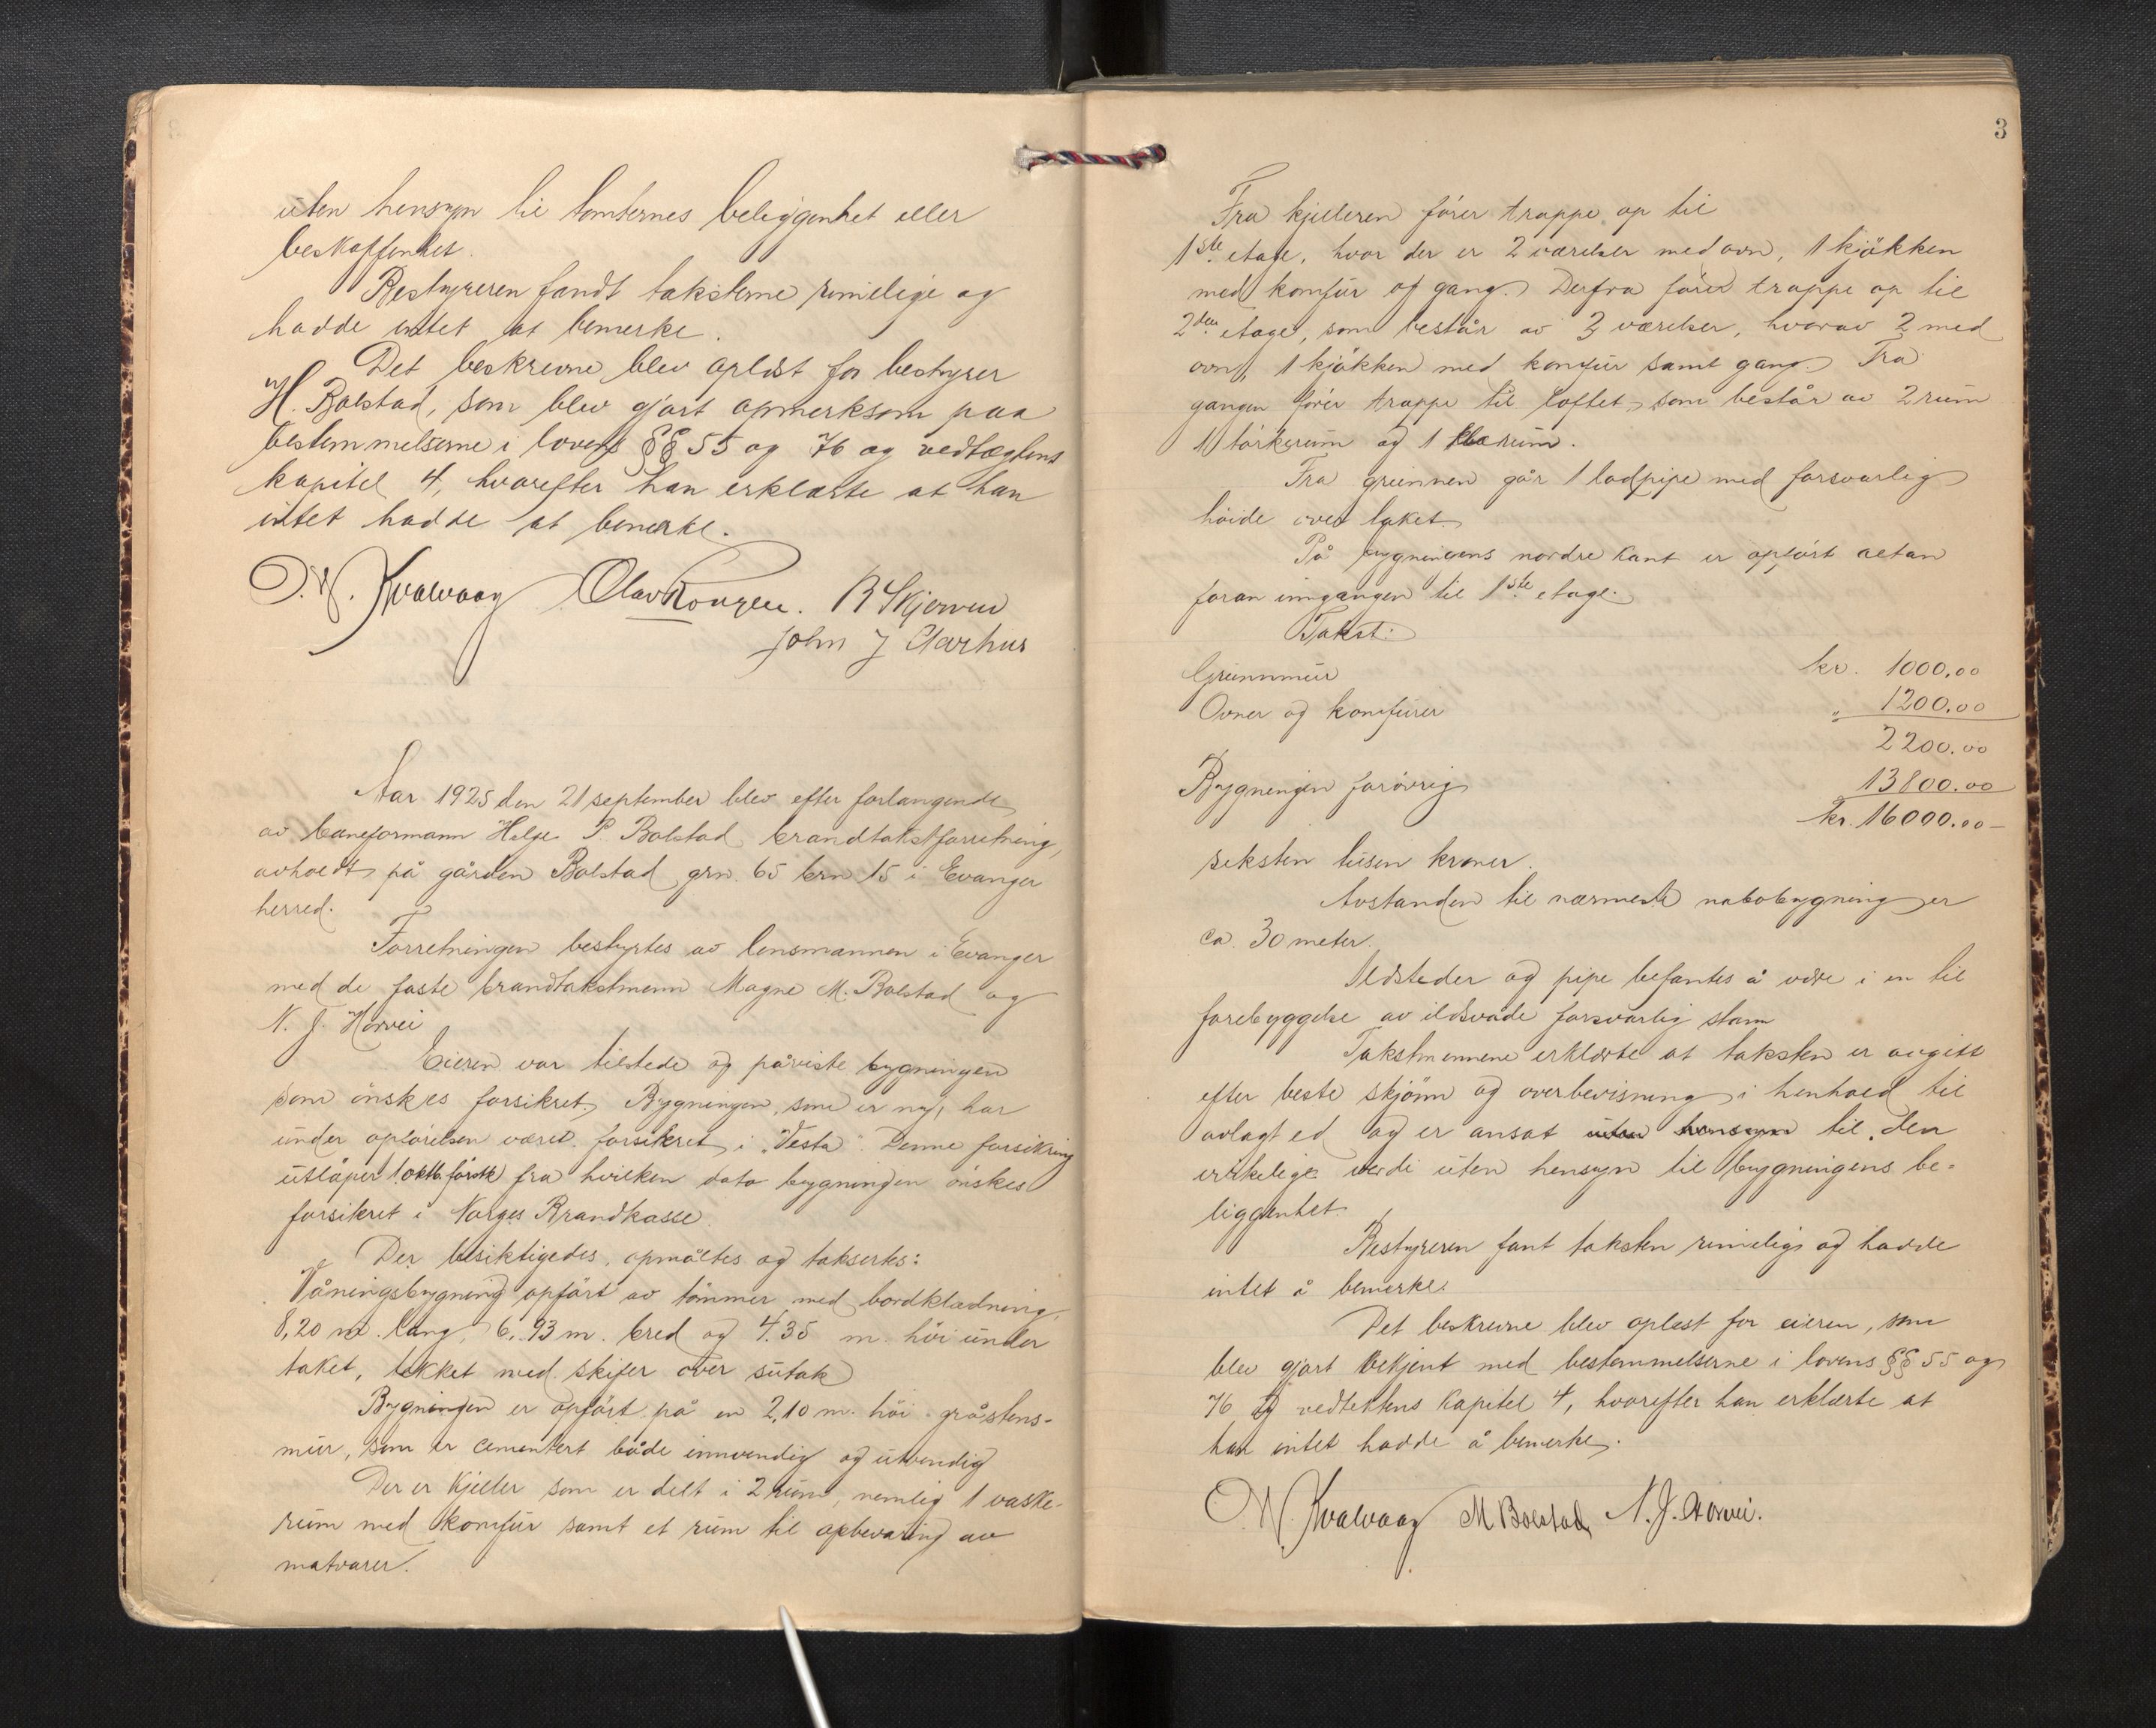 uten hensyn til tomternes beliggenhet eller
beskaffenhet.
Bestyreren fandt taksterne rimelige og
hadde intet at bemerke.
Det beskrevne blev oplæst for bestyrer
H. Bolstad, som blev gjort opmerksom paa
bestemmelserne i lovens §§ 55 og 76 og vedtægtens
kapitel 4, hvorefter han erklærte at han
intet hadde at bemerke.
O. N. Kvalvaag Olav B Skjerven
John J Aarhus
Aar 1925 den 21 september blev efter forlangende
av baneformann Helge P Bolstad brandtakstforretning,
avholdt på gården Bolstad grn. 65 brn 15 i Evanger
herred.
Forretningen bestyrtes av lensmannen i Evanger
med de faste brandtakstmenn Magne M. Bolstad og
N. J. Horvei
Eieren var tilstede og påviste bygningen
som önskes forsikret. Bygningen, som er ny, har
under opförelsen været forsikret i "Vesta". Denne forsikring
utlöper 1 oktb. förstk fra hvilken dato bygningen önskes
forsikret i Norges Brandkasse.
Der besiktigedes, opmåltes og taksertes:
Våningsbygning opfört av tömmer med bordklædning,
8,20 m. lang, 6,93 m. bred og 4,35 m. höi under
taket, tekket med skifer over sutak
Bygningen er opfört på en 2,10 m. höi gråstens-
mur, som er cementert både innvendig og utvendig
Der er kjeller som er delt i 2 rum, nemlig 1 vaske-
rum med komfur samt et rum til opbevaring av
matvarer.
3
Fra kjelleren förer trappe op til
1ste etage, hvor der er 2 værelser med ovn, 1 kjökken
med komfur og gang. Derfra förer trappe op til
2den etage, som består av 3 værelser, hvorav 2 med
ovn, 1 kjökken med komfur samt gang. Fra
gangen förer trappe til loftet, som består av 2 rum
1 törkerum og 1 rum.
Fra grunnen går 1 lodpipe med forsvarlig
höide over taket.
På bygningens nordre kant er opfört altan
foran inngangen til 1ste etage.
Takst:
Grunnmur kr. 1000.00
Ovner og komfurer " 1200.00
2200.00
Bygningen forövrig 13800.00
kr. 16000.00 -
seksten tusen kroner.
Avstanden til nærmeste nabobygning er
ca. 30 meter.
Ildsteder og pipe befantes å være i en til
forebyggelse av ildsvåde forsvarlig stann
Takstmennene erklærte at taksten er avgitt
efter beste skjönn og overbevisning i henhold til
avlagt ed og er ansat uten hensyn til den
virkelige verdi uten hensyn til bygningens be-
liggenhet.
Bestyreren fant taksten rimelig og hadde
intet å bemerke.
Det beskrevne blev oplest for eieren, som
blev gjort bekjent med bestemmelserne i lovens §§ 55 og
76 og vedtektens kapitel 4, hvorefter han erklærte at
han intet hadde å bemerke.
O. N. Kvalvaag M Bolstad N. J. Horvei.